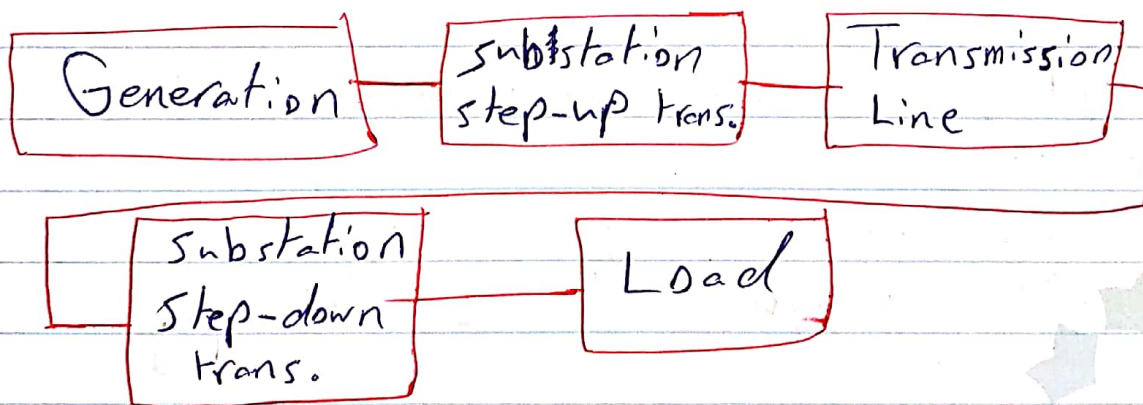 Generation
substation
step-up trans.
Transmission
Line
substation
step-down
trans.
Load